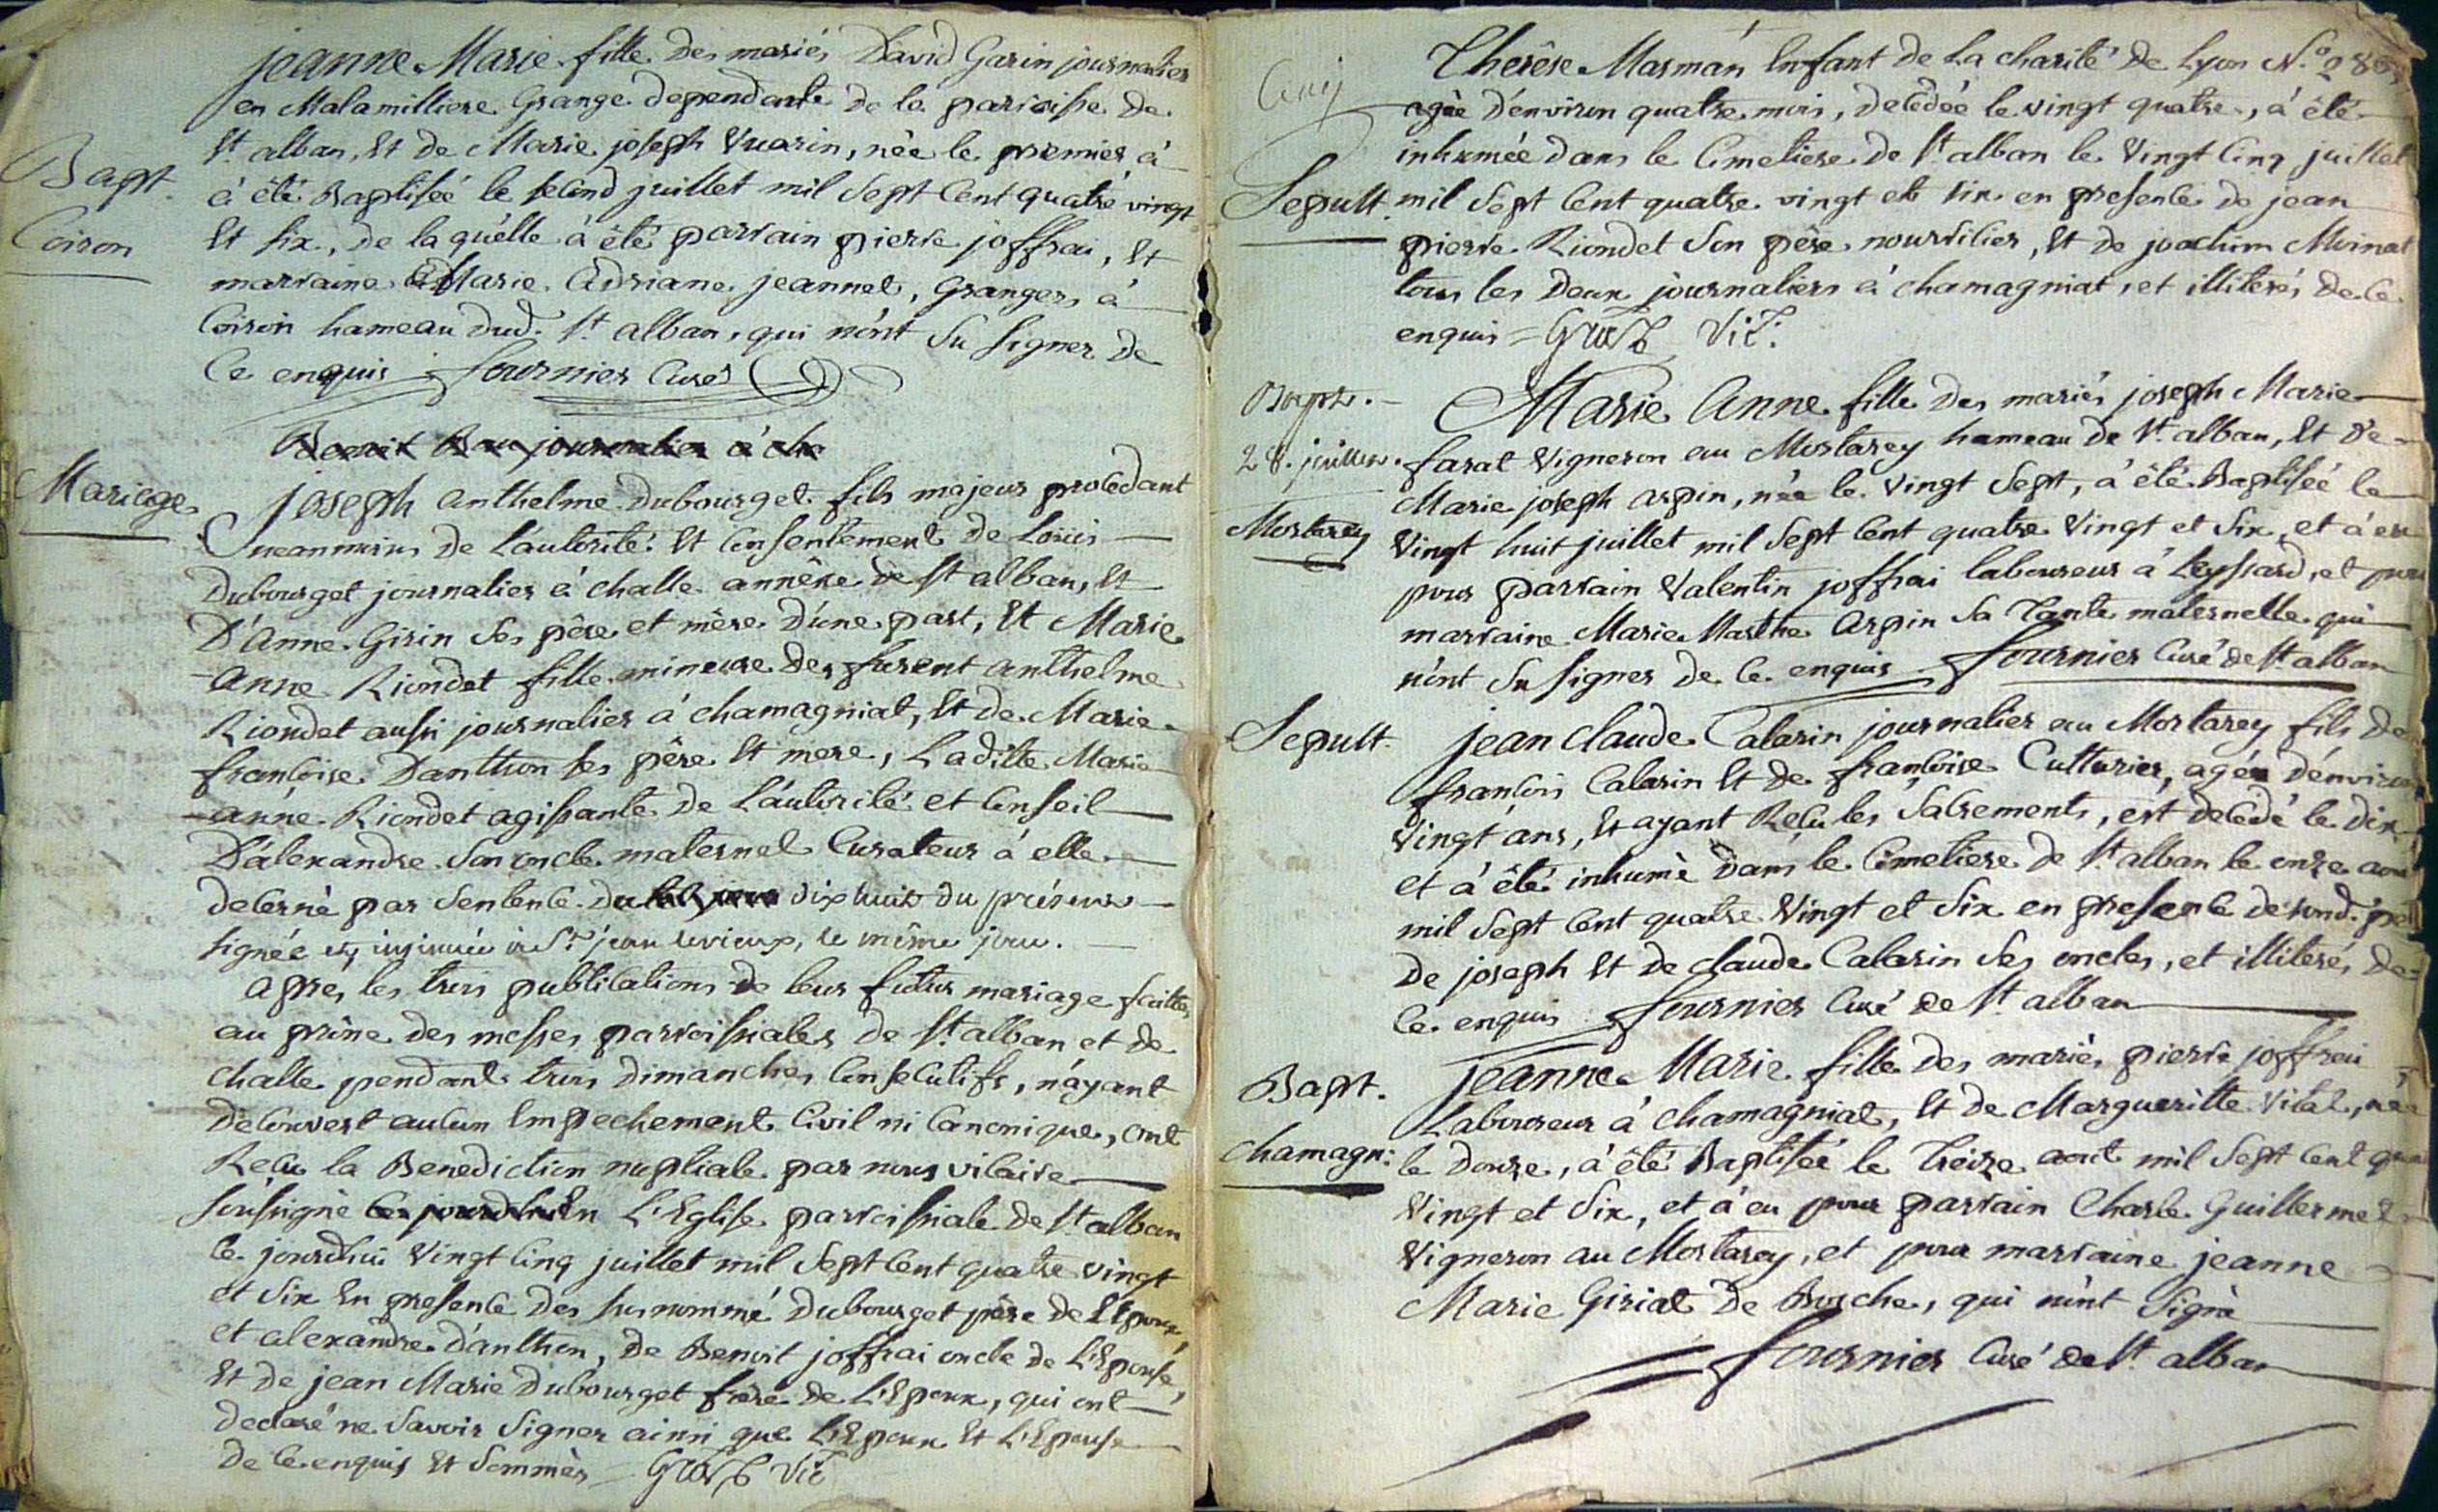 jeanne Marie fille des mariés David Garin journalier
en Malamilliere Grange dependante de la paroisse de
St alban, et de Marie joseph Vuarin, née le premier à
Bapt.
à été Baptiseé le second juillet mil sept cent quatre vingt
Coiron
et six, de laquélle à été parrain pierre joffrai, et
marraine Marie Adriane jeannet, Grangers à
Coiron hameau dud. St alban, qui n'ont su signer de
ce enquis fournier Curé
Benoit Bau journalier à cha
Mariage
joseph anthelme Dubourget fils majeur procedant
neanmoins de l'autorité et consentement de Loüis
Dubourget journalier à challe annêxe de St alban, et
D'Anne Girin ses pêre et mère d'une part, et Marie
anne Riondet fille mineure des furent anthelme
Riondet aussi journalier à chamagniat, et de Marie
francoise Danthon ses pêre et mere, Laditte Marie
anne Riondet agissante de l'autorité et conseil
D'alexandre son oncle maternel Curateur à elle
decerné par sentence du dix huit du présent
signée et insinuée à St jean levieux, le même jour.
apres les trois publications de leur futur mariage faittes
au prône des messes parroissiales de St alban et de
challe pendant trois dimanches consecutifs, n'ayant
decouvert aucun Empechement Civil ni canonique, ont
Recu la Benediction nuptiale par nous vicaire
soussigné ce jourdhui En L'Eglise parroissiale de St alban
ce jourdhui vingt cinq juillet mil sept cent quatre vingt
et six En presence des susnommé Dubourget pére de l'Epoux,
et alexandre d'anthon, de Benoit joffrai oncle de L'Epouse,
et de jean Marie Dubourget frére de L'Epoux, qui ont
declaré ne savoir signer ainsi que L'Epoux et L'Epouse
de ce enquis et sommés Gros Vic
Therêse Marman Enfant de la charité de Lyon N.o
agée d'environ quatre mois, decedée le vingt quatre, à été
inhumée dans le Cimetiere de St alban le vingt cinq juillet
Sepult.
mil sept cent quatre vingt et six en presence de jean
pierre Riondet son pêre nourricier, et de joachim Moinat
tous les deux journaliers à chamagniat, et illiterés de ce
enquis = Gros Vic:
Bapt.
Marie Anne fille des mariés joseph Marie
28. juillet.
farat vigneron au Mortarey hameau de St alban, et de
Marie joseph arpin, née le vingt sept, à été Baptiseé le
Mortarey
vingt huit juillet mil sept cent quatre vingt et six, et à eu
pour parrain Valentin joffrai laboureur à Leyssard, et pour
marraine Marie Marthe arpin sa tante maternelle qui
n'ont su signer de ce enquis fournier Curé de St alban
Sepult.
jean claude Calarin journalier au Mortarey fils de
francois Calarin et de françoise Cutturier, agé d'environ
vingt ans, et ayant Reçu les sacrements, est decedé le dix,
et à été inhumé dans le Cimetiere de St alban le onze aout
mil sept cent quatre vingt et six en presence de sond. pére
de joseph et de claude Calarin ses oncles, et illiterés de
ce enquis fournier Curé de St alban
Bapt.
jeanne Marie fille des mariés pierre joffrai
Laboureur à chamagniat, et de Margueritte Vitat, née
chamagn:
le douze, à été Baptisée le treize aout mil sept cent quatre
vingt et six, et à eu pour parrain Charle Guillermet
vigneron au Mortarey, et pour marraine jeanne
Marie Giriat de Bosche, qui n'ont signé
fournier Curé de St alban